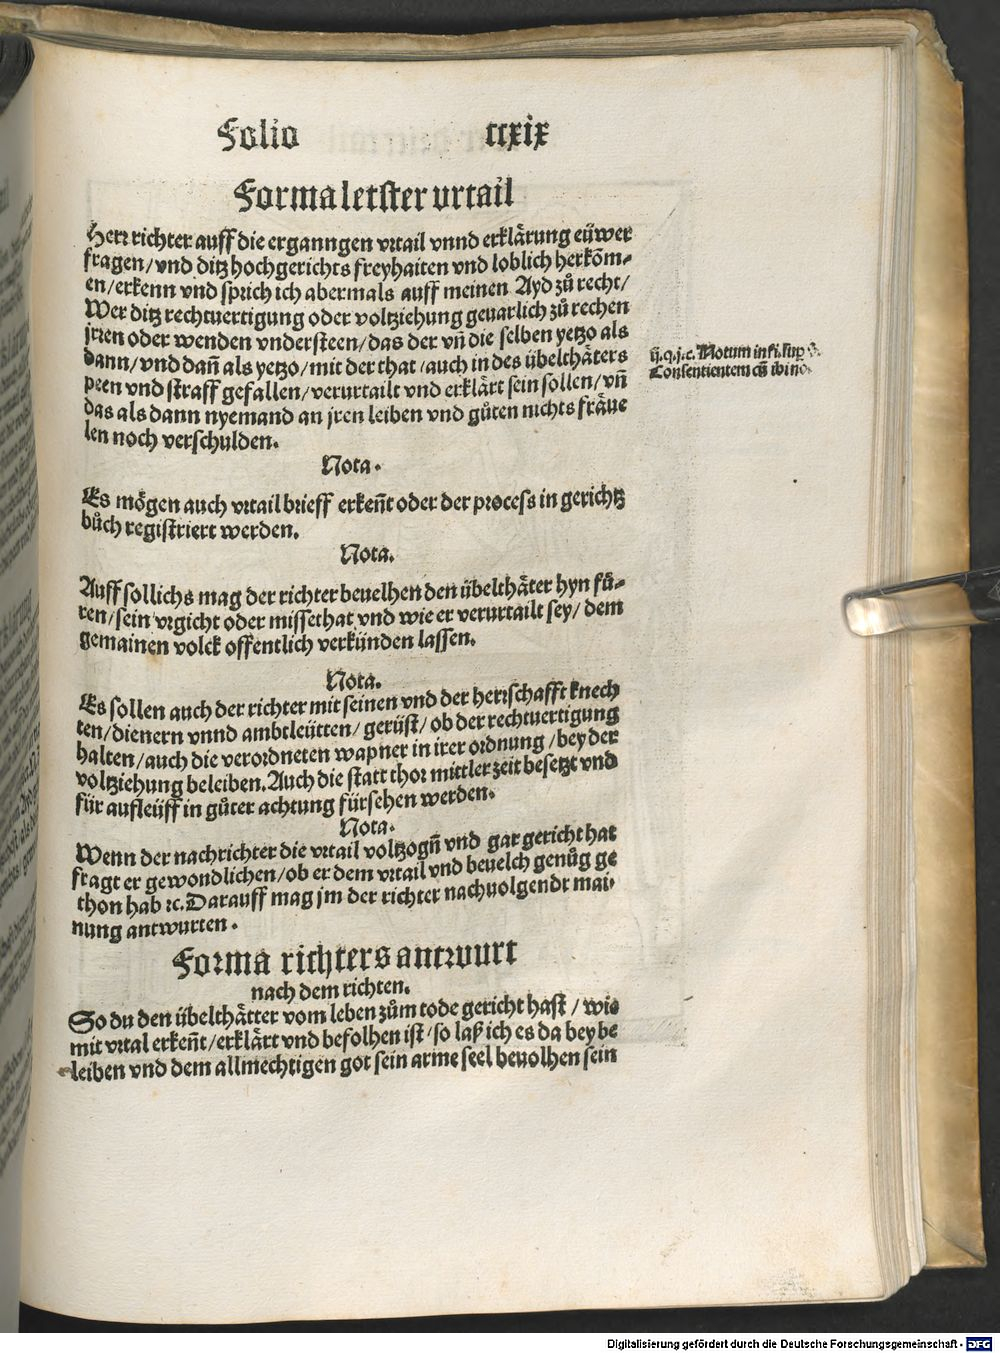 Folio ccxix
Forma letster vrtail
Herr richter auff die erganngen vrtail vnnd erklärung eüwer
fragen/vnd ditz hochgerichts freyhaiten vnd loblich herkõm-
en/erkenn vnd sprich ich abermals auff meinen Ayd zů recht/
Wer ditz rechtuertigung oder voltziehung geuarlich zů rechen
jrren oder wenden vndersteen/das der vñ die selben yetzo als
dann/vnd dañ als yetzo/mit der that/auch in des übelthäters
peen vnd straff gefallen/verurtailt vnd erklärt sein sollen/vñ
das als dann nyemand an jren leiben vnd gůten nichts fräue
len noch verschulden.
ij.q.j.c. Notum in fi. sup
Consentientem cũ ibi no.
Nota.
Es mögen auch vrtail brieff erkeñt oder der process in gerichtz
bůch registriert werden.
Nota.
Auff sollichs mag der richter beuelhen den übelthäter hyn fů-
ren/sein vrgicht oder missethat vnd wie er verurtailt sey/dem
gemainen volck offentlich verkünden lassen.
Nota.
Es sollen auch der richter mit seinen vnd der herrschafft knech
ten/dienern vnnd ambtleütten/gerüst/ob der rechtuertigung
halten/auch die verordneten wapner in irer ordnung/bey der
voltziehung beleiben. Auch die statt thor mittler zeit besetzt vnd
für aufleüff in gůter achtung fürsehen werden.
Nota.
Wenn der nachrichter die vrtail voltzogñ vnd gar gericht hat
fragt er gewondlichen/ob er dem vrtail vnd beuelch genůg ge
thon hab ꝛc. Darauff mag jm der richter nachuolgendr mai-
nung antwurten.
Forma richters antwurt
nach dem richten.
So du den übelthätter vom leben zům tode gericht hast/wie
mit vrtal erkeñt/erklärt vnd befolhen ist/so laß ich es da bey be
leiben vnd dem allmechtigen got sein arme seel beuolhen sein
Digitalisierung gefördert durch die Deutsche Forschungsgemeinschaft - DFG